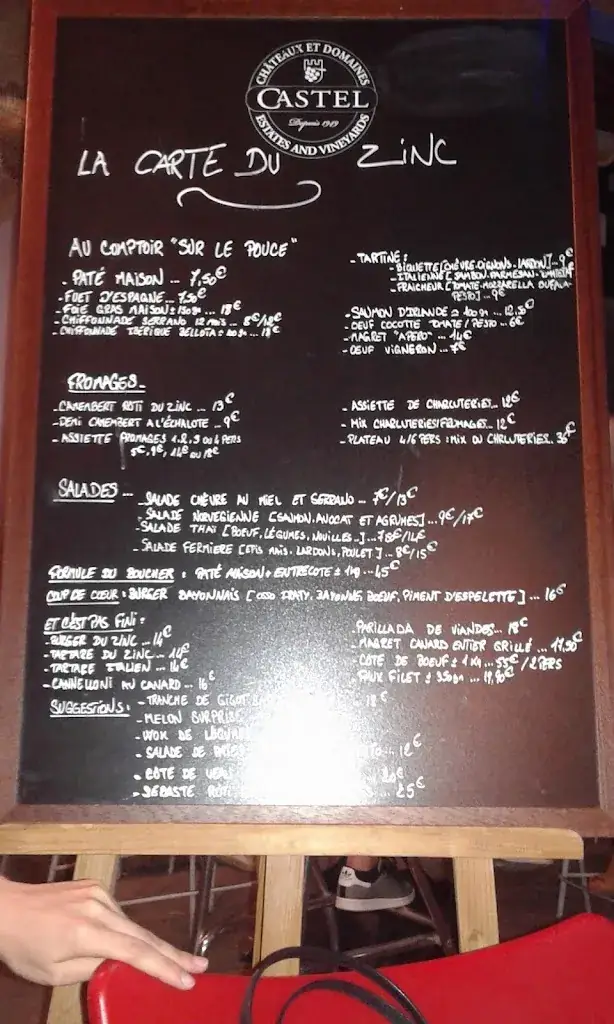 CHÂTEAUX ET DOMAINES
CASTEL
Depuis 1949
ESTATES AND VINEYARDS
LA CARTE DU ZINC
AU COMPTOIR "SUR LE POUCE"
- PATÉ MAISON ... 7,50€
- FUET D'ESPAGNE ... 7,50€
- FOIE GRAS MAISON ± 130 gr ... 18€
- CHIFFONNADE SERRANO 12 mois ... 8€/18€
- CHIFFONNADE IBERIQUE BELLOTA ... 18€
- TARTINE :
- BIQUETTE [CHÈVRE. OIGNONS. LARDON] ... 9€
- ITALIENNE [JAMBON. PARMESAN. TOMATE]
- FRAICHEUR [TOMATE. MOZZARELLA BUFALA-
PESTO] ... 9€
- SAUMON D'IRLANDE ± 100 gr ... 12,50€
- OEUF COCOTTE TOMATE / PESTO ... 6€
- MAGRET "APERO" ... 14€
- OEUF VIGNERON ... 7€
FROMAGES -
- CAMEMBERT ROTI DU ZINC ... 13€
- DEMI CAMEMBERT A L'ÉCHALOTE ... 9€
- ASSIETTE FROMAGES 1.2.3 OU 4 PERS
5€, 9€, 14€ OU 18€
- ASSIETTE DE CHARCUTERIES .. 12€
- MIX CHARCUTERIES/FROMAGES .. 12€
- PLATEAU 4/6 PERS : MIX OU CHRCUTERIES. 35€
SALADES ...
- SALADE CHÈVRE AU MIEL ET SERRANO ... 7€/13€
- SALADE NORVEGIENNE [SAUMON. AVOCAT ET AGRUMES] ... 9€/17€
- SALADE THAÏ [BOEUF, LÉGUMES, NOUILLES ..] ... 7,8€/14€
- SALADE FERMIERE [EPIS MAIS. LARDONS, POULET] ... 8€/15€
FORMULE DU BOUCHER : PATÉ MAISON + ENTRECOTE ± 1 KG ... 45€
COUP DE COEUR : BURGER BAYONNAIS [OSSO IRATY, BAYONNE, BOEUF, PIMENT D'ESPELETTE] ... 16€
ET C'EST PAS FINI :
- BURGER DU ZINC ... 14€
- TARTARE DU ZINC ... 14€
- TARTARE ITALIEN ... 14€
- CANNELLONI AU CANARD ... 16€
- PARILLADA DE VIANDES ... 18€
- MAGRET CANARD ENTIER GRILLÉ ... 17,90€
- COTE DE BOEUF ± 1 KG ... 55€ / 2 PERS
- FAUX FILET ± 350 gr ... 19,90€
SUGGESTIONS :
- TRANCHE DE GIGOT 18€
- MELON SURPRISE
- WOK DE LÉGUM
- SALADE DE ... 12€
- COTE DE VEAU
- SEBASTE ROTI ... 25€